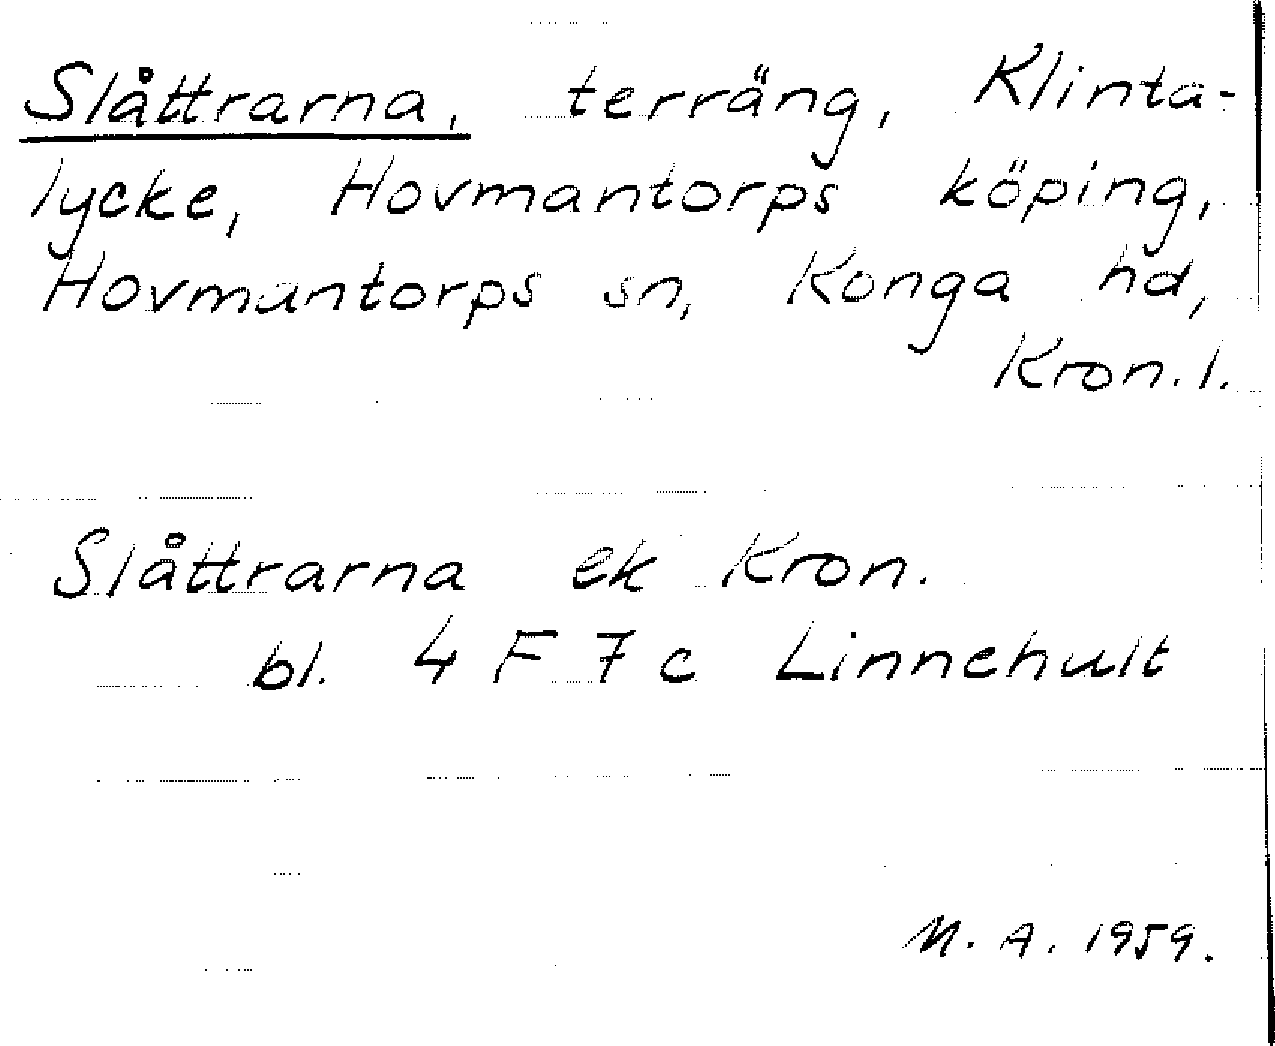 Slåttrarna, terräng, Klinta-
lycke, Hovmantorps köping,
Hovmantorps sn, Konga hd,
Kron. l.
Slåttrarna ek Kron.
bl. 4 F 7 c Linnehult
M. A. 1959.